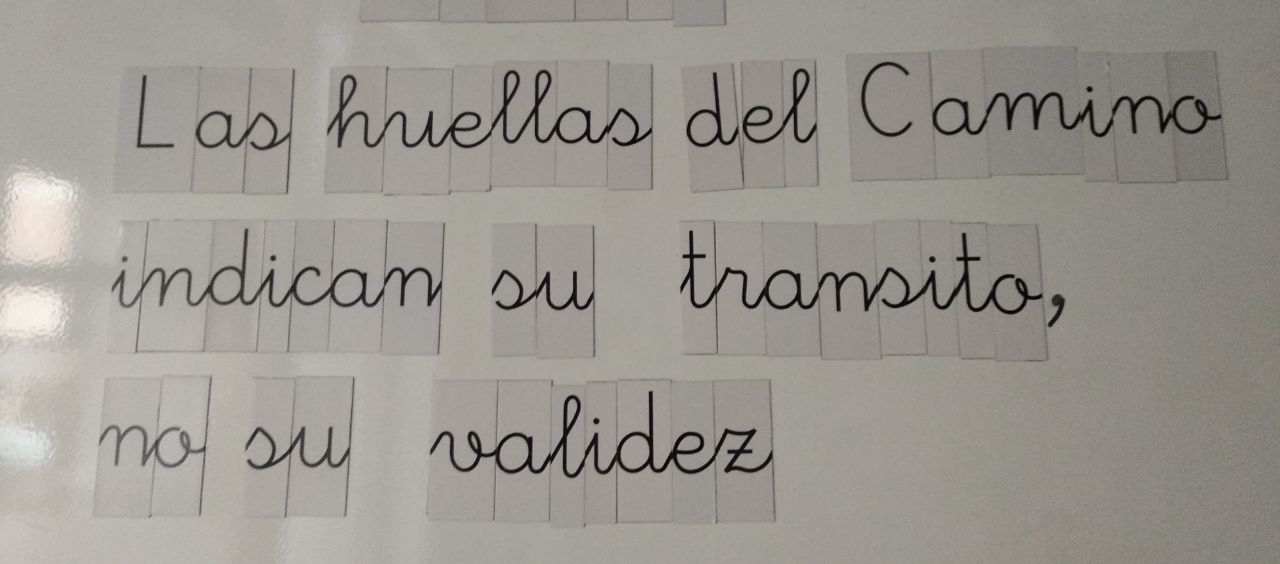 Las huellas del Camino
indican su transito,
no su validez